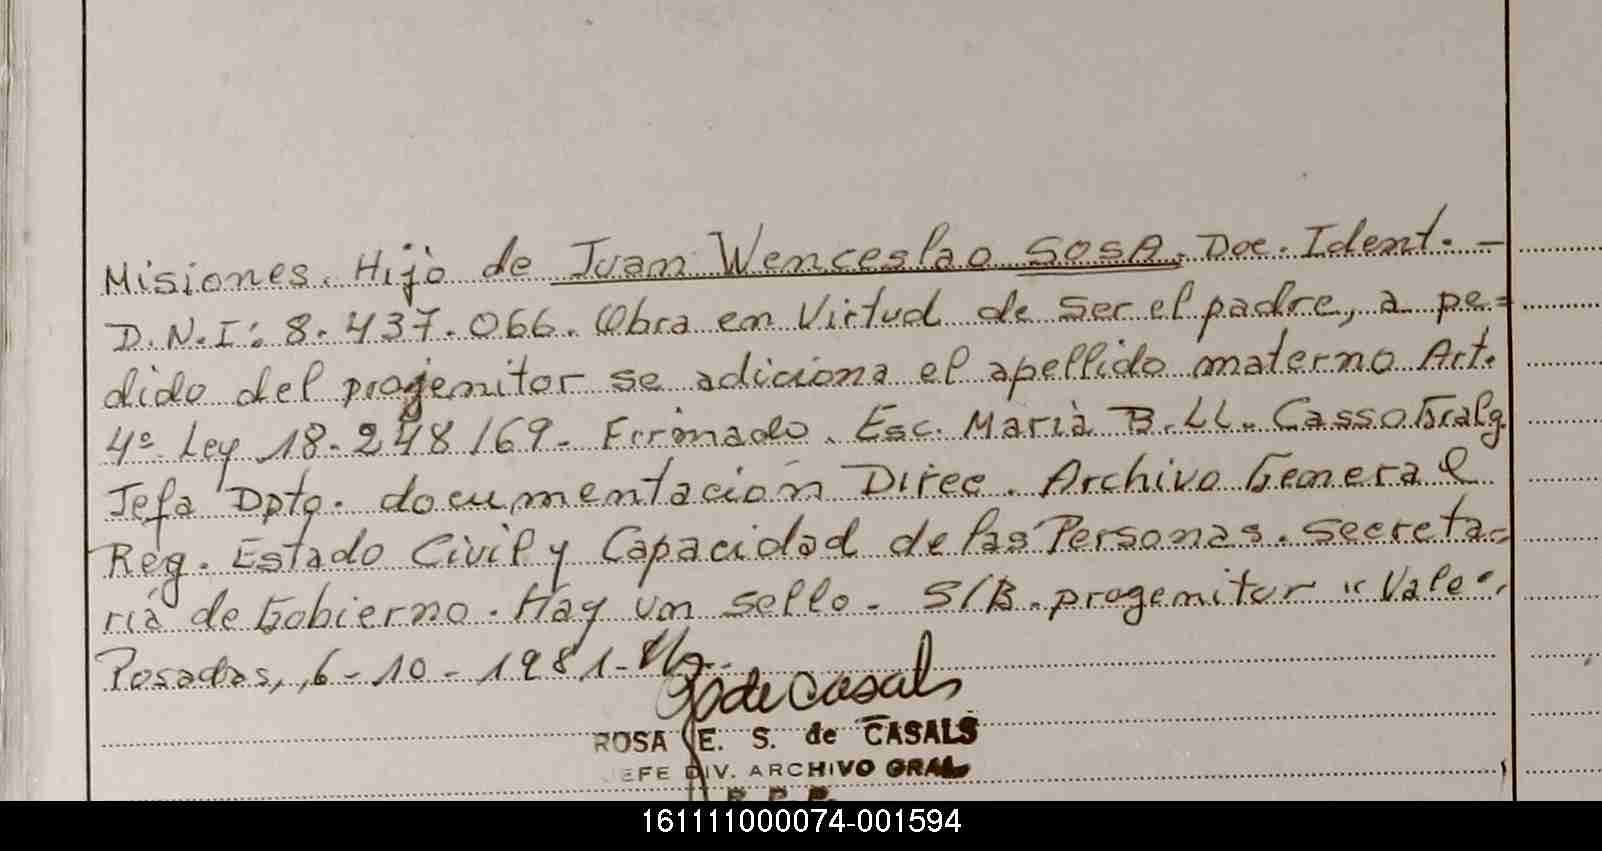 Misiones. Hijo de Juan Wenceslao SOSA. Doc. Ident. -
D.N.I: 8.437.066. Obra en Virtud de ser el padre, a pe=
dido del progenitor se adiciona el apellido materno Art.
4º Ley 18-248/69- Firmado. Esc. María B. LL. Casso
Jefa Dpto. documentación Direc. Archivo General
Reg. Estado Civil y Capacidad de las Personas. Secreta=
ría de Gobierno. Hay un sello. S/B. progenitor "Vale".
Posadas, 6-10-1981-
R S de Casals
ROSA E. S. de CASALS
JEFE DIV. ARCHIVO GRAL
R. P. P.
161111000074-001594